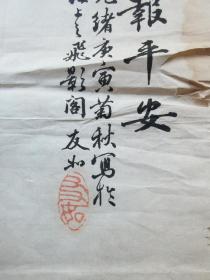 報平安
光緒庚寅菊秋寫於
飛影閣 友如
友如